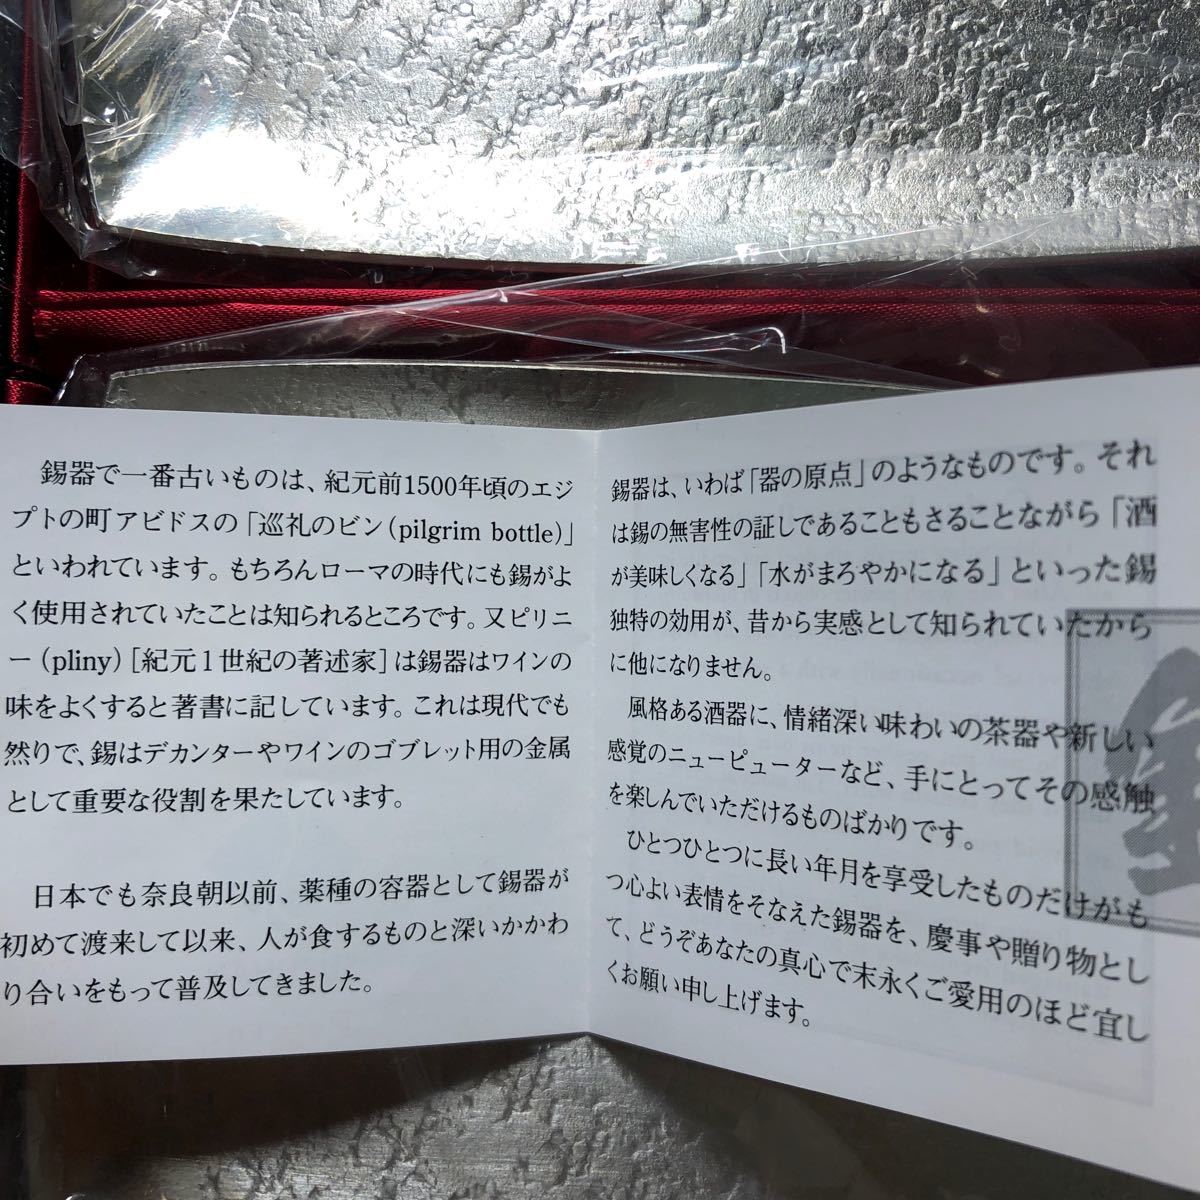 錫器で一番古いものは、紀元前1500年頃のエジ
プトの町アビドスの「巡礼のビン(pilgrim bottle)」
といわれています。もちろんローマの時代にも錫がよ
く使用されていたことは知られるところです。又ピリニ
ー(pliny)[紀元1世紀の著述家]は錫器はワインの
味をよくすると著書に記しています。これは現代でも
然りで、錫はデカンターやワインのゴブレット用の金属
として重要な役割を果たしています。
日本でも奈良朝以前、薬種の容器として錫器が
初めて渡来して以来、人が食するものと深いかかわ
り合いをもって普及してきました。
錫器は、いわば「器の原点」のようなものです。それ
は錫の無害性の証しであることもさることながら「酒
が美味しくなる」「水がまろやかになる」といった錫
独特の効用が、昔から実感として知られていたから
に他になりません。
風格ある酒器に、情緒深い味わいの茶器や新しい
感覚のニューピューターなど、手にとってその感触
を楽しんでいただけるものばかりです。
ひとつひとつに長い年月を享受したものだけがも
つ心よい表情をそなえた錫器を、慶事や贈り物とし
て、どうぞあなたの真心で末永くご愛用のほど宜し
くお願い申し上げます。